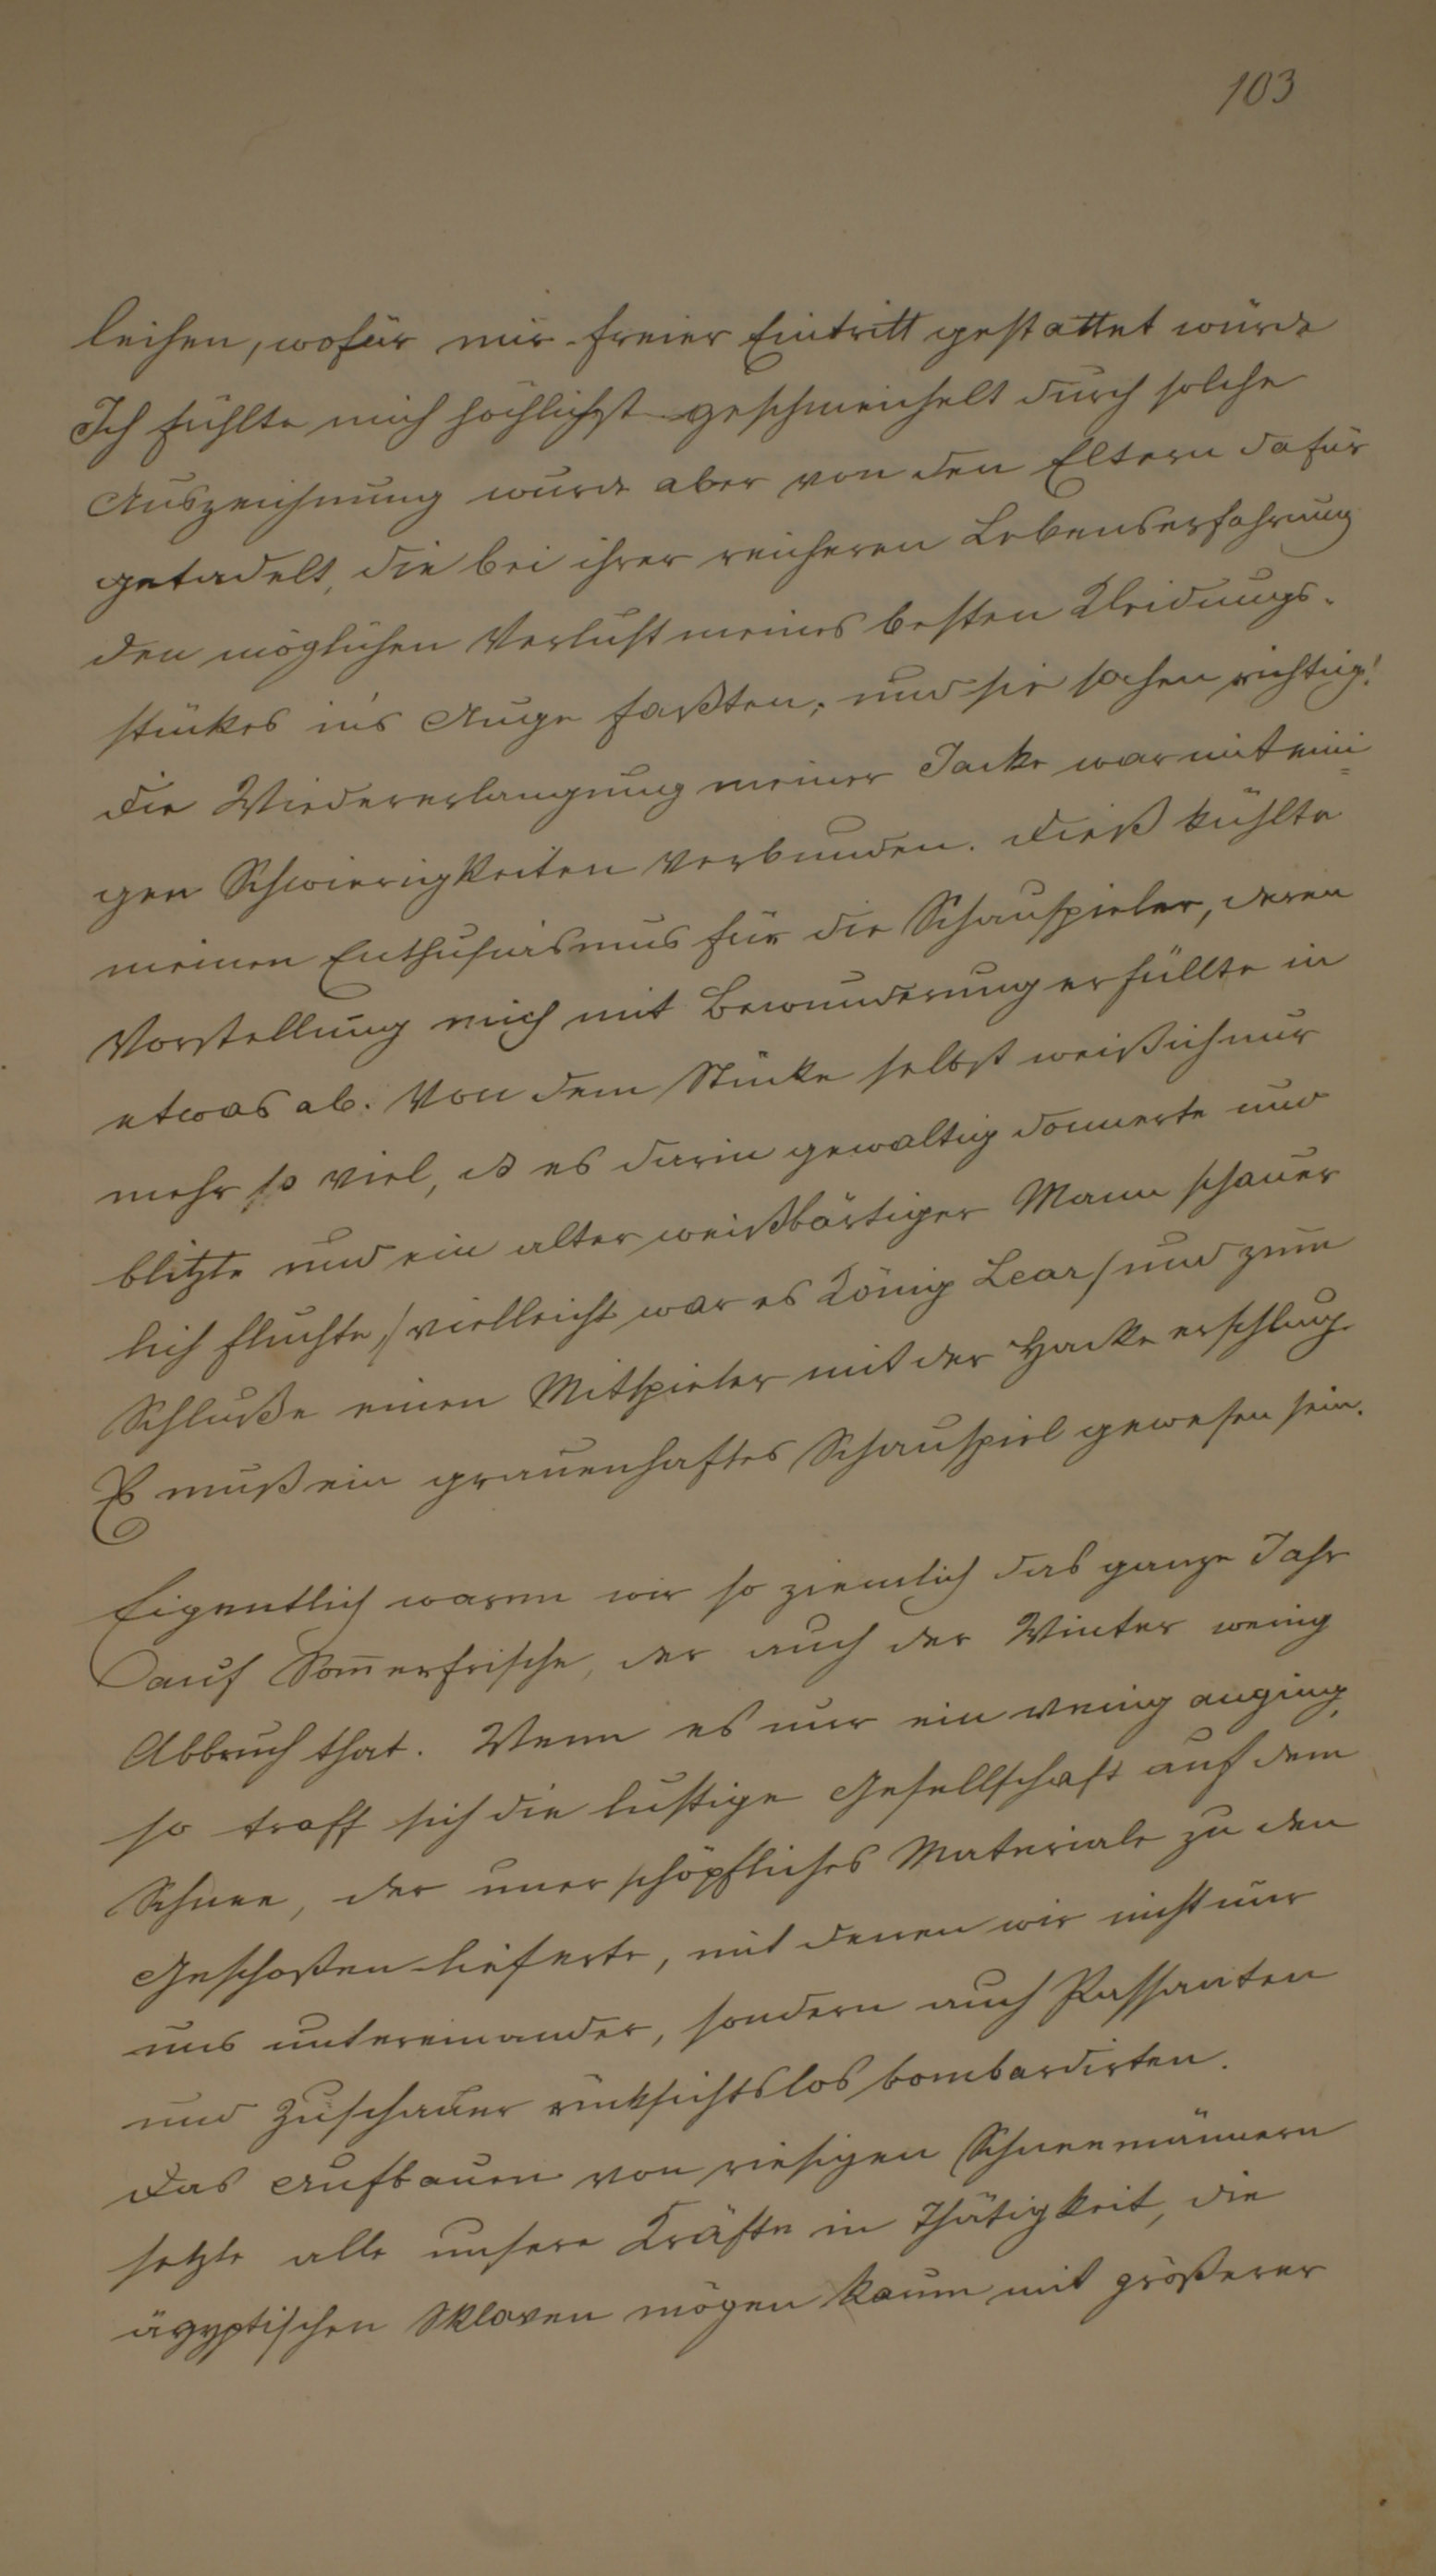 103
leihen, wofür mir freier Eintritt gestattet würde
Ich fühlte mich höchlichst geschmeichelt durch solche
Auszeichnung wurde aber von den Eltern dafür
getadelt, die bei ihrer reicheren Lebenserfahrung
den möglichen Verlust meines besten Kleidungs-
stückes in's Auge faßten; und sie sahen richtig!
Die Wiedererlangung meiner Jacke war mit eini=
gen Schwierigkeiten verbunden. Dieß kühlte
meinen Enthusiasmus für die Schauspieler, deren
Vorstellung mich mit Bewunderung erfüllte in
etwas ab. Von dem Stücke selbst weiß ich nur
mehr so viel, dß es darin gewaltig donnerte und
blitzte und ein alter weißbärtiger Mann schauer
lich fluchte, /vielleicht war es König Lear/ und zum
Schluße einen Mitspieler mit der Hacke erschlug.
Es muß ein grauenhaftes Schauspiel gewesen sein.
Eigentlich waren wir so ziemlich das ganze Jahr
auf Som̄erfrische, der auch der Winter wenig
Abbruch that. Wenn es nur ein wenig anging,
so traff sich die lustige Gesellschaft auf dem
Schnee, der unerschöpfliches Materiale zu den
Geschoßen lieferte, mit denen wir nicht nur
uns untereinander, sondern auch Passanten
und Zuschauer rücksichtslos bombardirten.
Das Aufbauen von riesigen Schneemännern
setzte alle unsere Kräfte in Thätigkeit, die
ägyptischen Sklaven mögen kaum mit größerer